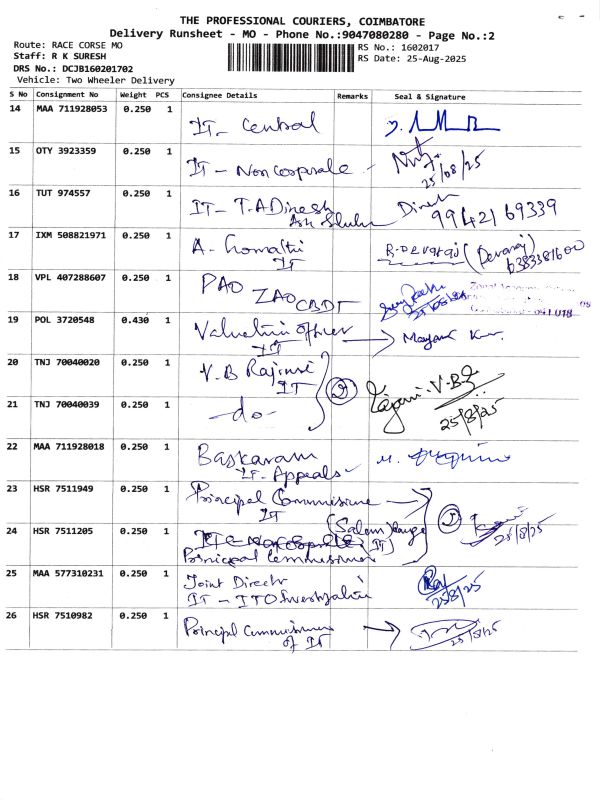 THE PROFESSIONAL COURIERS, COIMBATORE
Delivery Runsheet - MO - Phone No.:9047080280 - Page No.:2
Route: RACE CORSE MO
RS No.: 1602017
Staff: R K SURESH
RS Date: 25-Aug-2025
DRS No.: DCJB160201702
Vehicle: Two Wheeler Delivery
S No Consignment No Weight PCS Consignee Details Remarks Seal & Signature
14 MAA 711928053 0.250 1
IT- Central
15 OTY 3923359 0.250 1
IT - Non Corporate
25/08/25
16 TUT 974557 0.250 1
IT- T.A Dinesh
Dinesh
99421 69339
17 IXM 508821971 0.250 1
A. Gomathi
IT
(Devaraj)
6383381600
18 VPL 407288607 0.250 1
PAO
ZAO CBDT
641 018
19 POL 3720548 0.430 1
Valuation Officer
IT
Mayank
20 TNJ 70040020 0.250 1
V.B Rajini
IT
2
21 TNJ 70040039 0.250 1
-do-
25/8/25
22 MAA 711928018 0.250 1
Baskaram
IT. Appeals
23 HSR 7511949 0.250 1
Principal Commissione
IT
24 HSR 7511205 0.250 1
(Salem Range
IT)
Principal Commissioner
25/8/25
25 MAA 577310231 0.250 1
Joint Director
IT - ITO Investigation
25/8/25
26 HSR 7510982 0.250 1
Principal Commissioner
of IT
25/8/25